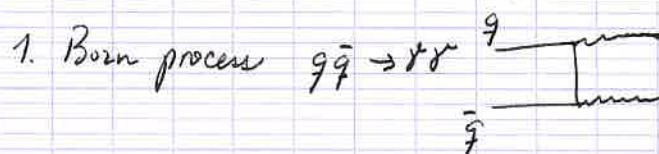 1. Born process q q̄ → γγ
q
q̄